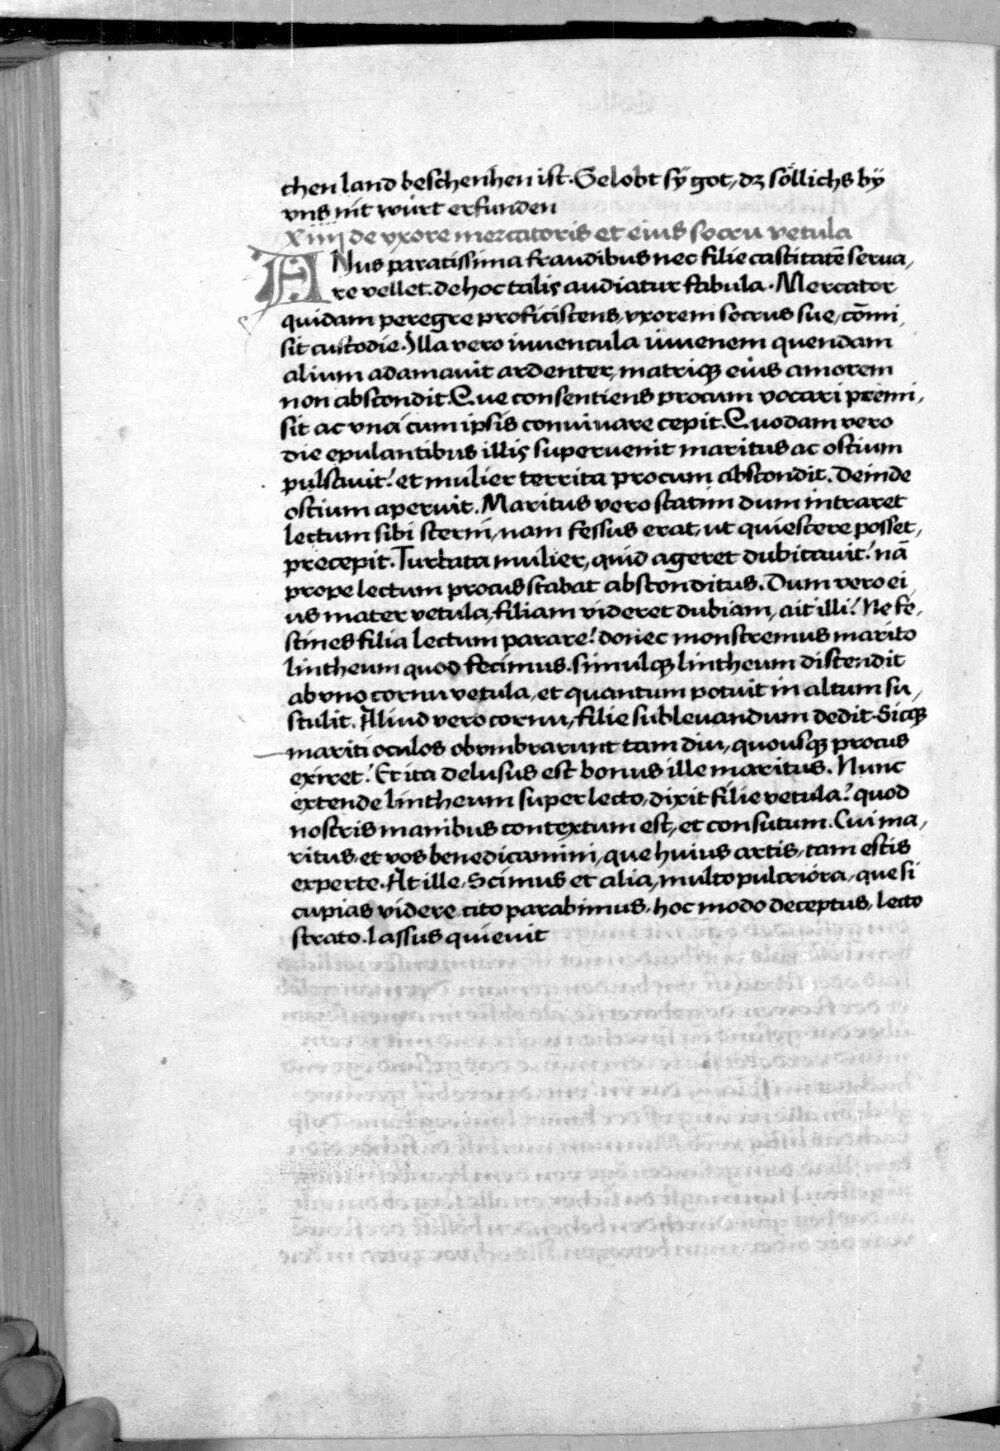 chen land beschenhen ist. Gelobt sÿ got, dz söllichs bÿ
vns nit würt erfunden
xiiij de vxore mercatoris et eius socru vetula
ANus paratissima fraudibus nec filie castitatē serua,
re vellet. de hoc talis audiatur fabula. Mercator
quidam peregre proficiscens, vxorem socrus sue, cōmi,
sit custodie. Illa vero iuuencula iuuenem quendam
alium adamauit ardenter, matriqꝫ eius amorem
non abscondit. Que consentiens procum vocari permi,
sit ac vna cum ipsis conuiuare cepit. Quodam vero
die epulantibus illis superuenit maritus ac ostium
pulsauit: et mulier territa procum abscondit. Deinde
ostium aperuit. Maritus vero statim dum intraret
lectum sibi sterni, nam fessus erat, ut quiescere posset,
precepit. Turbata mulier, quid ageret dubitauit: nā
prope lectum procus stabat absconditus. Dum vero ei
us mater vetula, filiam videret dubiam, ait illi: Ne fe,
stines filia lectum parare: donec monstremus marito
lintheum quod fecimus. simulqꝫ lintheum distendit
ab vno cornu vetula, et quantum potuit in altum su,
stulit. Aliud vero cornu, filie subleuandum dedit. Sicqꝫ
mariti oculos obumbrarunt tam diu, quousqꝫ procus
exiret: Et ita delusus est bonus ille maritus. Nunc
extende lintheum super lecto, dixit filie vetula: quod
nostris manibus contextum est, et consutum. Cui ma,
ritus, et vos benedicamini, que huius artis, tam estis
experte. At ille, Scimus et alia, multo pulcriora, que si
cupias videre cito parabimus, hoc modo deceptus, lecto
strato. lassus quieuit